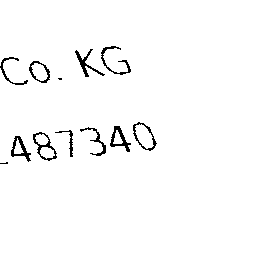 Co. KG
487340